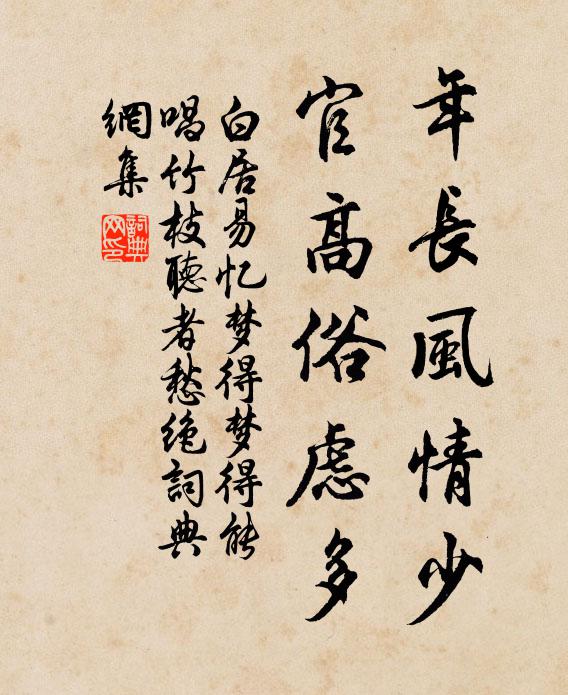 年長風情少
官高俗慮多
白居易忆梦得梦得能
唱竹枝聽者愁絶詞典
網集
詞典网印